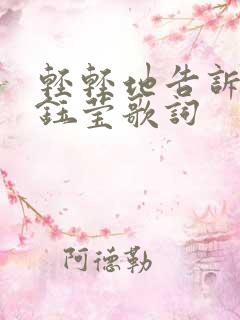 輕輕地告訴
鈺莹歌詞
阿德勒